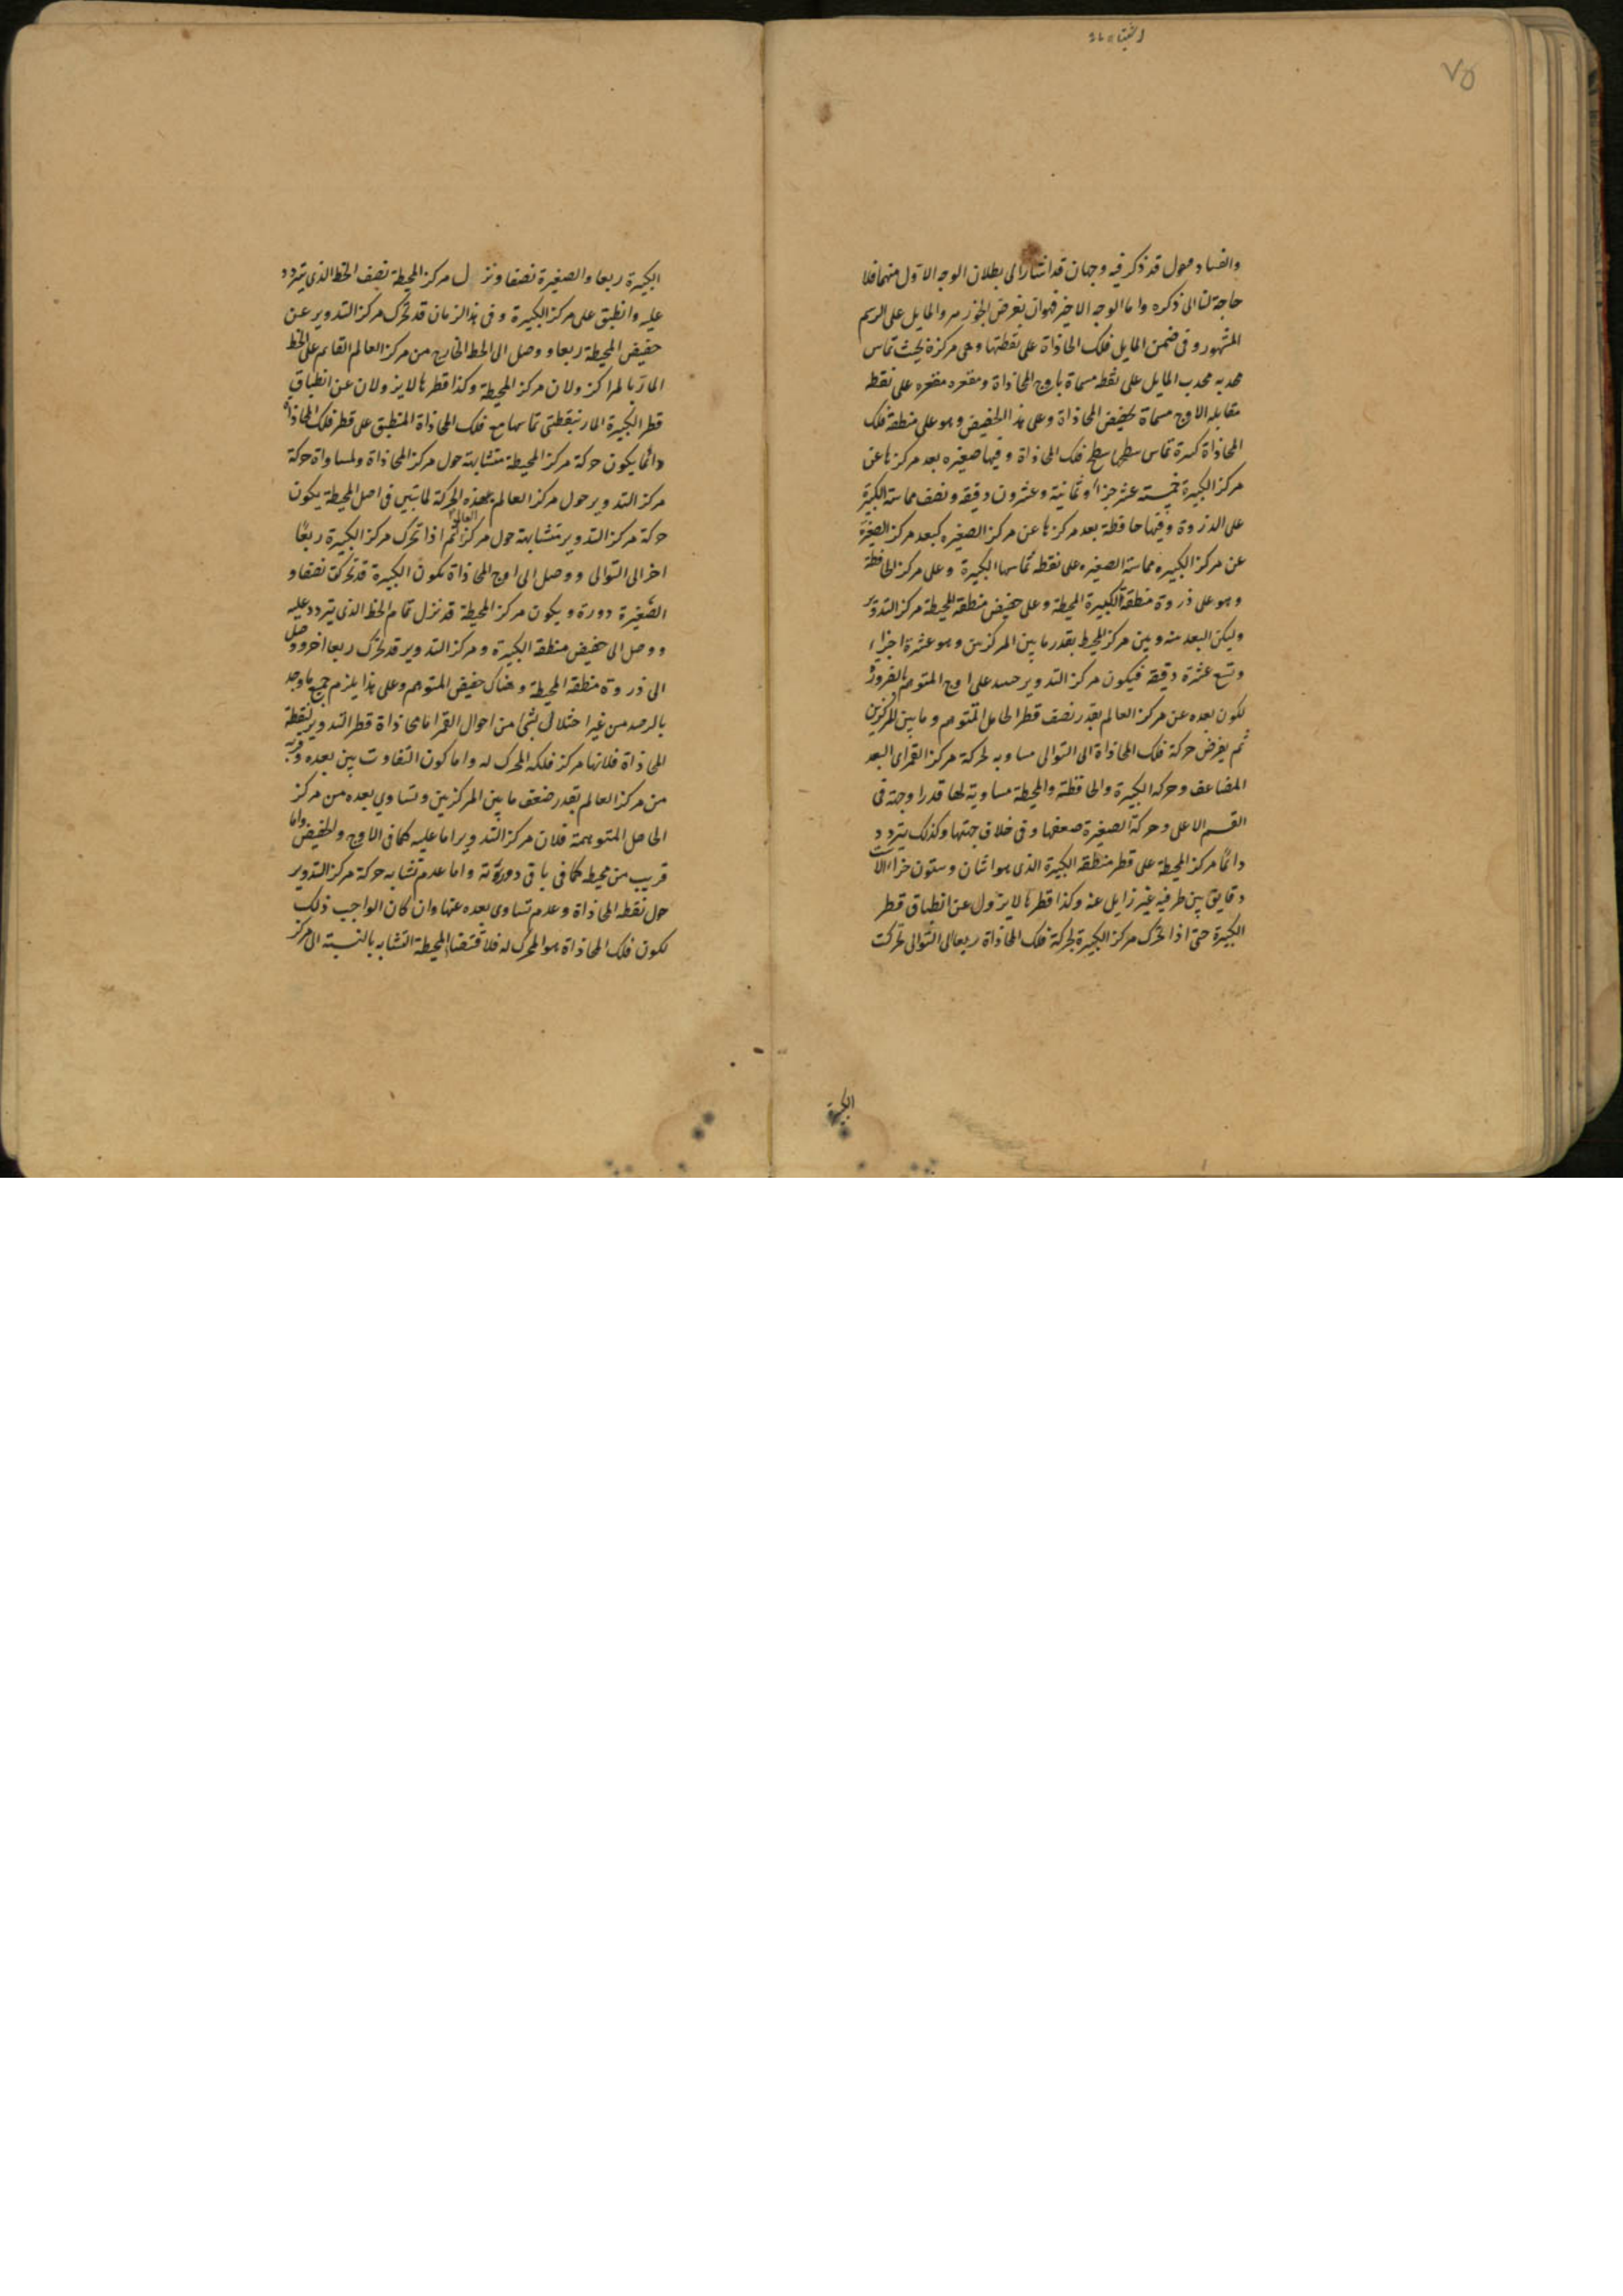 ٧٥
وايضا و نقول قد ذكر فيه وجهان قد اشار الى بطلان الوجه الاول منهما فلا
حاجة لنا الى ذكره واما الوجه الاخير فهو ان نفرض الجوزهر والمايل على الرسم
المشهور وفى ضمن المايل فلك المحاذاة على نقطتها وهى مركزه بحيث تماس
محدبه محدب المايل على نقطه مسماة باوج المحاذاة ومقعره مقعره على نقطه
مقابله الاوج مسماة بحضيض المحاذاة وعلى هذا الحضيض وهو على منطقة فلك
المحاذاة كبيرة تماس سطحها سطح فلك المحاذاة وفيها صغيره بعد مركزها عن
مركز الكبيرة خمسته عشر جزا وثمانية وعشرون دقيقه ونصف مماسته الكبيرة
على الذروة وفيها حافظة بعد مركزها عن مركز الصغيره كبعد مركز الصغيرة
عن مركز الكبيره مماسة الصغيره على نقطه تماسها الكبيرة وعلى مركز الحافظة
وهو على ذروة منطقة الكبيرة المحيطة وعلى حضيض منطقة المحيطة مركز التدوير
وليكن البعد منه وبين مركز المحيط بقدر ما بين المركزين وهو عشرة اجزاء
وتسع عشرة دقيقة فيكون مركز التدوير حينئذ على اوج المتوهم بالضرورة
لكون بعده عن مركز العالم بقدر نصف قطر الحامل المتوهم وما بين المركزين
ثم يفرض حركة فلك المحاذاة الى التوالى مساويه لحركة مركز القمر اى البعد
المضاعف وحركه الكبيرة والحافظة والمحيطة مساوية لها قدرا وجهة فى
القسم الاعلى وحركة الصغيرة ضعفها وفى خلاف جهتها وكذلك يتردد
دائما مركز المحيطة على قطر منطقه الكبيرة الذى هو اثنان وستون جزا الا ثلث
دقايق بين طرفيه غير زايل عنه وكذا قطرها لا يزول عن انطباق قطر
الكبيرة حتى اذا تحرك مركز الكبيرة بحركة فلك المحاذاة ربعا الى التوالى تحركت
الكبيرة
الكبيرة ربعا والصغيرة نصفا ونزل مركز المحيطة نصف الخط الذى يتردد
عليه وانطبق على مركز الكبيرة وفى هذا الزمان قد تحرك مركز التدوير عن
حضيض المحيطة ربعا ووصل الى الخط الخارج من مركز العالم القايم على الخط
المار بالمراكز ولان مركز المحيطة وكذا قطرها لا يزولان عن انطباق
قطر الكبيرة المار بنقطتى تماسها مع فلك المحاذاة المنطبق على قطر فلك المحاذاة
دائما يكون حركة مركز المحيطة متشابهة حول مركز المحاذاة ولمساواة حركة
مركز التدوير حول مركز العالم بهذه الحركة لما تبين فى اصل المحيطة يكون
حركة مركز التدوير متشابهة حول مركز العالم ثم اذا تحرك مركز الكبيرة ربعا
اخر الى التوالى ووصل الى اوج المحاذاة تكون الكبيرة قد تحركت نصفا و
الصغيرة دورة ويكون مركز المحيطة قد نزل تمام الخط الذى يتردد عليه
ووصل الى حضيض منطقه الكبيرة ومركز التدوير قد تحرك ربعا اخر ووصل
الى ذروة منطقه المحيطة وهناك حضيض المتوهم وعلى هذا يلزم جميع ما وجد
بالرصد من غير اختلال بشئ من احوال القمر اما محاذاة قطر التدوير لنقطة
المحاذاة فلانها مركز فلكه المحرك له واما كون التفاوت بين بعده وقربه
من مركز العالم بقدر ضعف ما بين المركزين وتساوى بعده من مركز
الحامل المتوهمة فلان مركز التدوير اما عليه كما فى الاوج والحضيض واما
قريب من محيطه كما فى باقى دورته واما عدم تشابه حركة مركز التدوير
حول نقطه المحاذاة وعدم تساوى بعده عنها وان كان الواجب ذلك
لكون فلك المحاذاة هو المحرك له فلاقتضاء المحيطة التشابه بالنسبة الى مركز